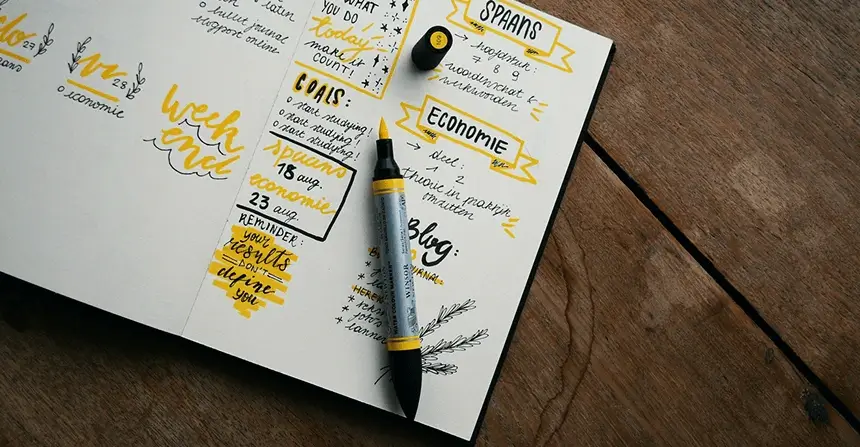 27
vr
28
o economie
week
end
laten
o bullet journal
support online
WHAT
YOU DO
today
make it
COUNT!
GOALS:
o start studying!
o start studying!
o start studying!
spaans
18 aug.
economie
23 aug.
REMINDER:
your
results
DON'T
define
you
SPAANS
→ hoofdstuk:
7 8 9
woordenschat &
werkwoorden
ECONOMIE
→ deel:
1 2
theorie in praktijk
omzetten
Blog:
WINSOR